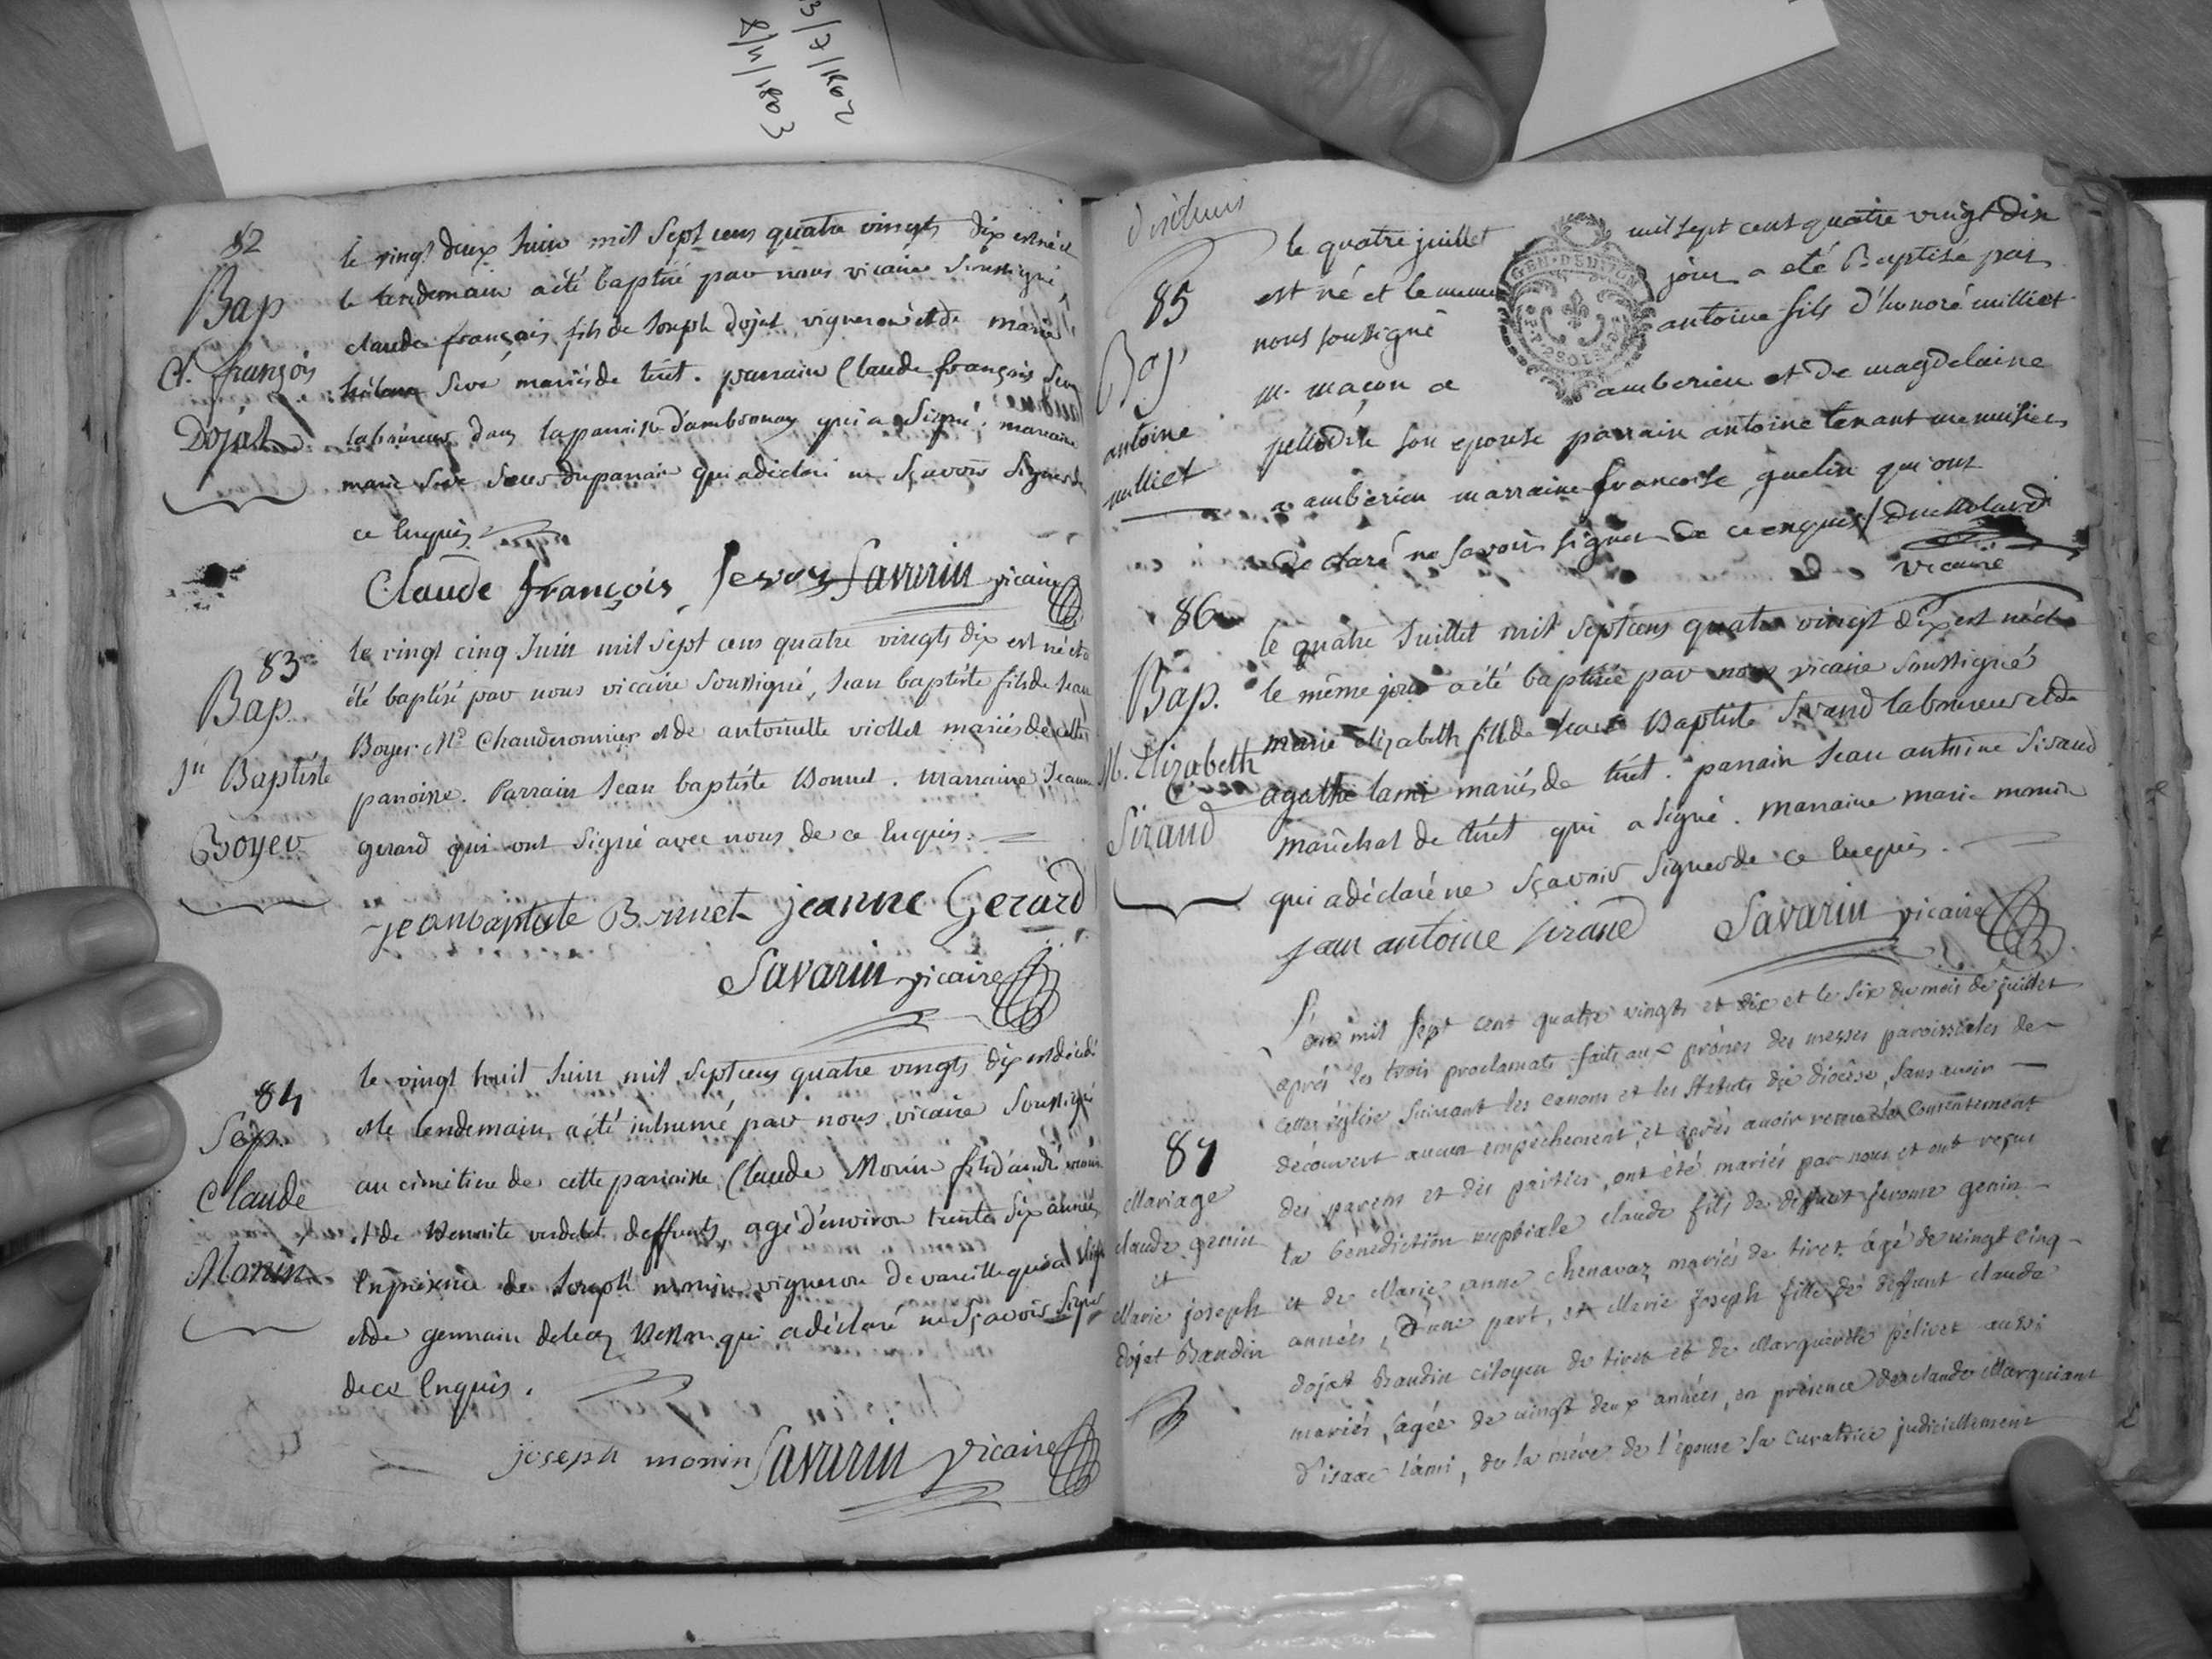 3/7/1802
8/4/1803
82
Bap
Cl. françois
Dojat
le vingt deux Juin mil sept cens quatre vingts dix est né et
le lendemain a été baptisé par nous vicaire soussigné,
claude françois fils de Joseph Dojat vigneron et de marie
héleine Seve mariés de tiret. parrain Claude françois Seve
laboureur dans la paroisse d'ambronay qui a signé. marraine
marie Seve Sœur du parrain qui a déclaré ne sçavoir signer de
ce Enquis.
Claude françois Savarin vicaire
83
Bap.
Jn Baptiste
Boyer
le vingt cinq Juin mil sept cens quatre vingts dix est né et a
été baptisé par nous vicaire soussigné, Jean baptiste fils de Jean
Boyer Md Chauderonnier et de antoinette viollet mariés de cette
paroisse. Parrain Jean baptiste Bonnet. Marraine Jeanne
gerard qui ont signé avec nous de ce Enquis.
jeanbaptiste Bonnet jeanne Gerard
Savarin vicaire
84
Sep.
Claude
Monin
le vingt huit Juin mil sept cens quatre vingts dix est décédé
et le lendemain a été inhumé par nous vicaire soussigné
au cimetiere de cette paroisse Claude Monin fils d'andré monin
et de Benoite verdelet deffunts, agé d'environ trente six années
En présence de Joseph monin vigneron de vareille qui a signé
et de germain qui a déclaré ne sçavoir signer
de ce Enquis.
joseph monin Savarin vicaire
85
Bap
antoine
milliet
le quatre juillet mil sept cent quatre vingt dix
est né et le meme jour a eté Baptisé par
nous soussigné antoine fils d'honoré milliet
m. maçon a amberieu et de magdelaine
son epouse parrain antoine tenant menuisier
a amberieu marraine francoise quelin qui ont
declaré ne savoir signer de ce enquis
vicaire
GEN. DE DIJON
86
Bap.
M. Elizabeth
Sirand
le quatre Juillet mil sept cens quatre vingt dix est née et
le même jour a été baptisée par nous vicaire soussigné
marie elizabeth fille de Jean Baptiste Sirand laboureur et de
agathe lami mariés de tiret. parrain Jean antoine Sirand
maréchal de tiret qui a signé. marraine marie monin
qui a déclaré ne sçavoir signer de ce Enquis.
jean antoine sirand Savarin vicaire
87
Mariage
claude genin
et
Marie joseph
dojat Baudin
L'an mil sept cent quatre vingts et dix et le six du mois de juillet
après les trois proclamats faits aux prônes des messes paroissiales de
cette église suivant les canons et les statuts du diocèse, sans avoir
découvert aucun empêchement, et après avoir reçu le consentement
des parens et des parties, ont été mariés par nous et ont reçus
la bénédiction nuptiale claude fils de deffunt jerome genin
et de Marie anne chenavaz mariés de tiret, âgé de vingt cinq
années, d'une part, et Marie joseph fille de deffunt claude
dojat Baudin citoyen de tiret et de Marguerite pélivet aussi
mariés, âgée de vingt deux années, en présence de claude Marguiant
d'isaac lami, de la mère de l'épouse sa curatrice judiciellement